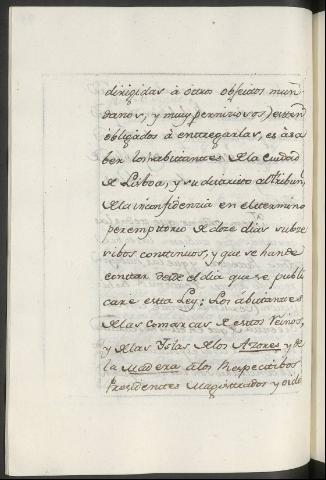 dirigidas à otros objectos mun
danos, y muy pernisiosos) esten
obligados à entregarlas, es à sa
ber los abitantes de la ciudad
de Lisboa, y su distrito al tribun.
de la inconfidenzia en el termino
peremptorio de doze dias subze
sibos continuos, y que se han de
contar desde el dia que se publi
care esta Ley: Los abitantes
de las comarcas de estos Reinos,
y de las Yslas de los Azores y de
la Madera à los Respectibos
Presidentes Magistrados y oido